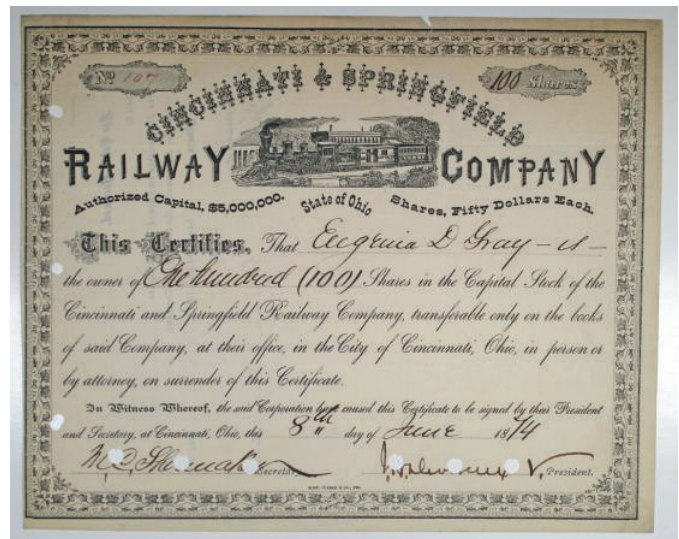 No 107 100 Shares
CINCINNATI & SPRINGFIELD
RAILWAY COMPANY
Authorized Capital, $5,000,000. State of Ohio Shares, Fifty Dollars Each.
This Certifies, That Eugenia D Gray - is -
the owner of One hundred (100) Shares in the Capital Stock of the
Cincinnati and Springfield Railway Company, transferable only on the books
of said Company, at their office, in the City of Cincinnati, Ohio, in person or
by attorney, on surrender of this Certificate.
In Witness Whereof, the said Corporation have caused this Certificate to be signed by their President
and Secretary, at Cincinnati, Ohio, this 8th " day of June 1874
Secretary. President.